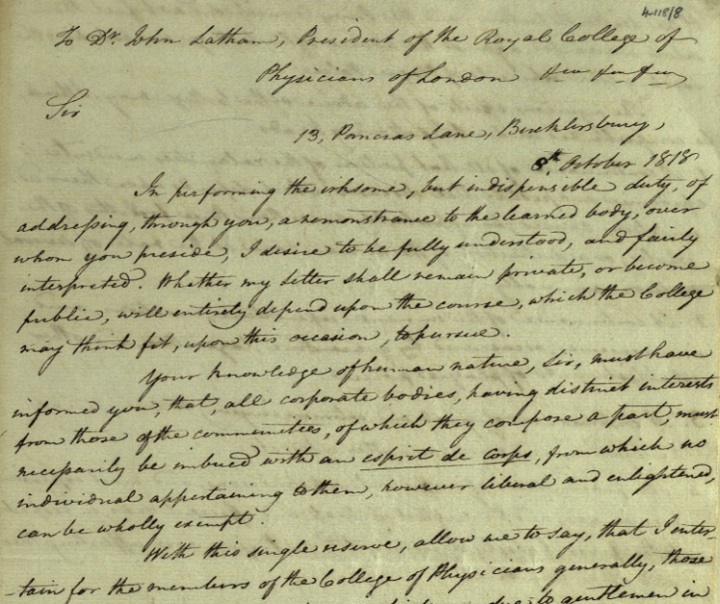 4118/8
To Dr. John Latham, President of the Royal College of
Physicians of London &c &c &c
Sir
13, Pancras Lane, Bucklersbury,
8th October 1818
In performing the irksome, but indispensible duty, of
addressing, through you, a remonstrance to the learned body, over
whom you preside, I desire to be fully understood, and fairly
interpreted. Whether my letter shall remain private, or become
public, will entirely depend upon the course, which the College
may think fit, upon this occasion, to pursue.
Your knowledge of human nature, Sir, must have
informed you, that, all corporate bodies, having distinct interests
from those of the communities, of which they compose a part, must
necessarily be imbued with an esprit de corps, from which no
individual appertaining to them, however liberal and enlightened,
can be wholly exempt.
With this single reserve, allow me to say, that I enter-
-tain for the members of the College of Physicians generally, those
due to gentlemen in